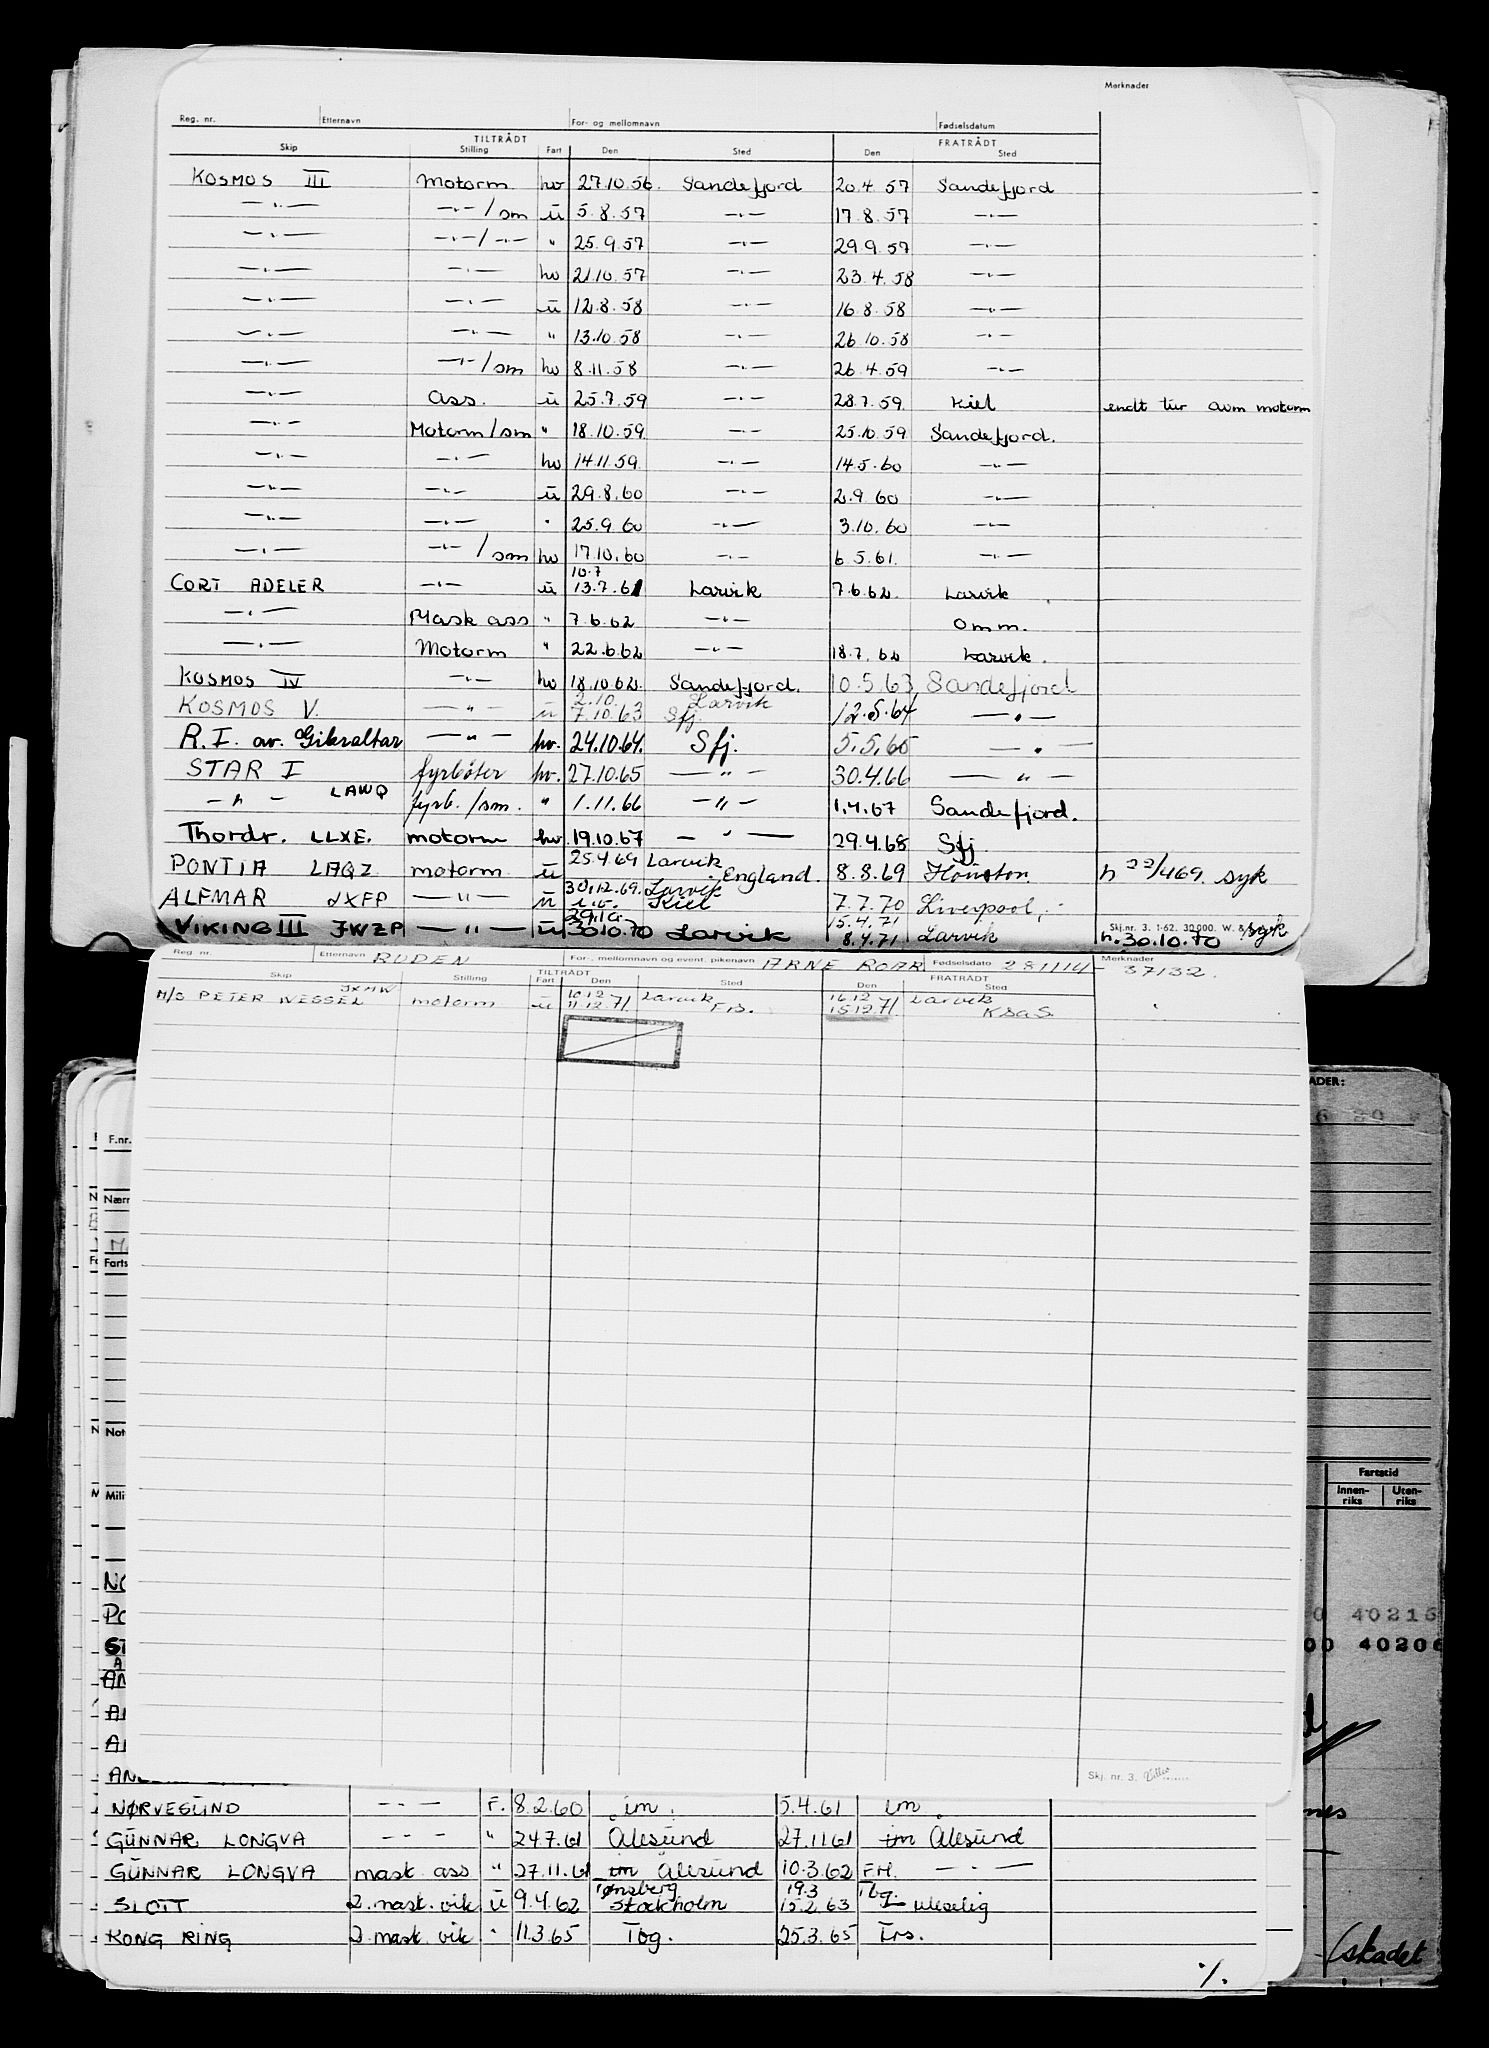 Merknader
Reg. nr. Etternavn For- og mellomnavn Fødselsdatum
TILTRÅDT FRATRÅDT
Skip Stilling Fart Den Sted Den Sted
KOSMOS III Motorm hv 27.10.56. Sandefjord 20.4.57 Sandefjord
—·— —·—/sm ū 5.8.57 —·— 17.8.57 —·—
—·— —·—/—·— " 25.9.57 —·— 29.9.57 —·—
—·— —·— hv 21.10.57 —·— 23.4.58 —·—
—·— —·— ū 12.8.58 —·— 16.8.58 —·—
—·— —·— " 13.10.58 —·— 26.10.58 —·—
—·— —·—/sm hv 8.11.58 —·— 26.4.59 —·—
—·— Ass. ū 25.7.59 —·— 28.7.59 Kiel endt tur som motorm
—·— Motorm/sm " 18.10.59 —·— 25.10.59 Sandefjord.
—·— —·— hv 14.11.59 —·— 14.5.60 —·—
—·— —·— ū 29.8.60 —·— 2.9.60 —·—
—·— —·— " 25.9.60 —·— 3.10.60 —·—
—·— —·—/sm hv 17.10.60 —·— 6.5.61. —·—
10.7
CORT ADELER —·— ū 13.7.61 Larvik 7.6.62. Larvik
—·— Mask ass " 7.6.62 —·— Omm.
—·— Motorm " 22.6.62 —·— 18.7.62 Larvik.
KOSMOS IV —·— hv 18.10.62. Sandefjord. 10.5.63, Sandefjord
2.10. Larvik
KOSMOS V. —"— ū 7.10.63 Sfj. 12.5.64 —·—
R.I. av. Gibraltar —"— hv. 24.10.64. Sfj. 5.5.65 —·—
STAR I fyrbøter hv. 27.10.65 —"— 30.4.66 —"—
—"— LAWQ fyrb./sm. " 1.11.66 —"— 1.4.67 Sandefjord.
Thordr. LLXE. motorm hv. 19.10.67 —"— 29.4.68 Sfj.
25.4.69 Larvik
PONTIA LAQZ motorm ū England. 8.8.69 Houston. h 22/469. syk
30.12.69. Larvik
ALFMAR JXFP —"— ū Kiel 7.7.70 Liverpool,
29.10. 15.4.71
VIKING III JWZP —"— ū 30.10.70 Larvik 8.4.71 Larvik h. 30.10.70 syk
Skj.nr. 3. 1-62. 30 000. W. &
Reg. nr. Etternavn RUDEN For-, mellomnavn og event. pikenavn ARNE ROAR Fødselsdato 281114- Merknader 37132.
TILTRÅDT FRATRÅDT
Skip Stilling Fart Den Sted Den Sted
JXMW 10.12 Larvik 16.12 Larvik
M/S PETER WESSEL motorm ū 11.12.71. Frs. 15.12.71. KSaS.
Skj. nr. 3.
F.nr.
Nærr
Farts
Not
Mili
NØRVESUND —·— F. 8.2.60 im. 5.4.61 im
GUNNAR LONGVA —·— " 24.7.61 Ålesund 27.11.61 im Ålesund
GUNNAR LONGVA mask ass " 27.11.61 im Ålesund 10.3.62 FH. —·—
Tønsberg 19.3 Tbg.
SLOTT 2. mask. vik ū 9.4.62 Stockholm 15.2.63 uleselig
KONG RING 2 mask vik " 11.3.65 Tbg. 25.3.65 Frs.
·/.
ADER:
Fartstid
Innen-riks Uten-riks
0 40215
00 40206
(skadet